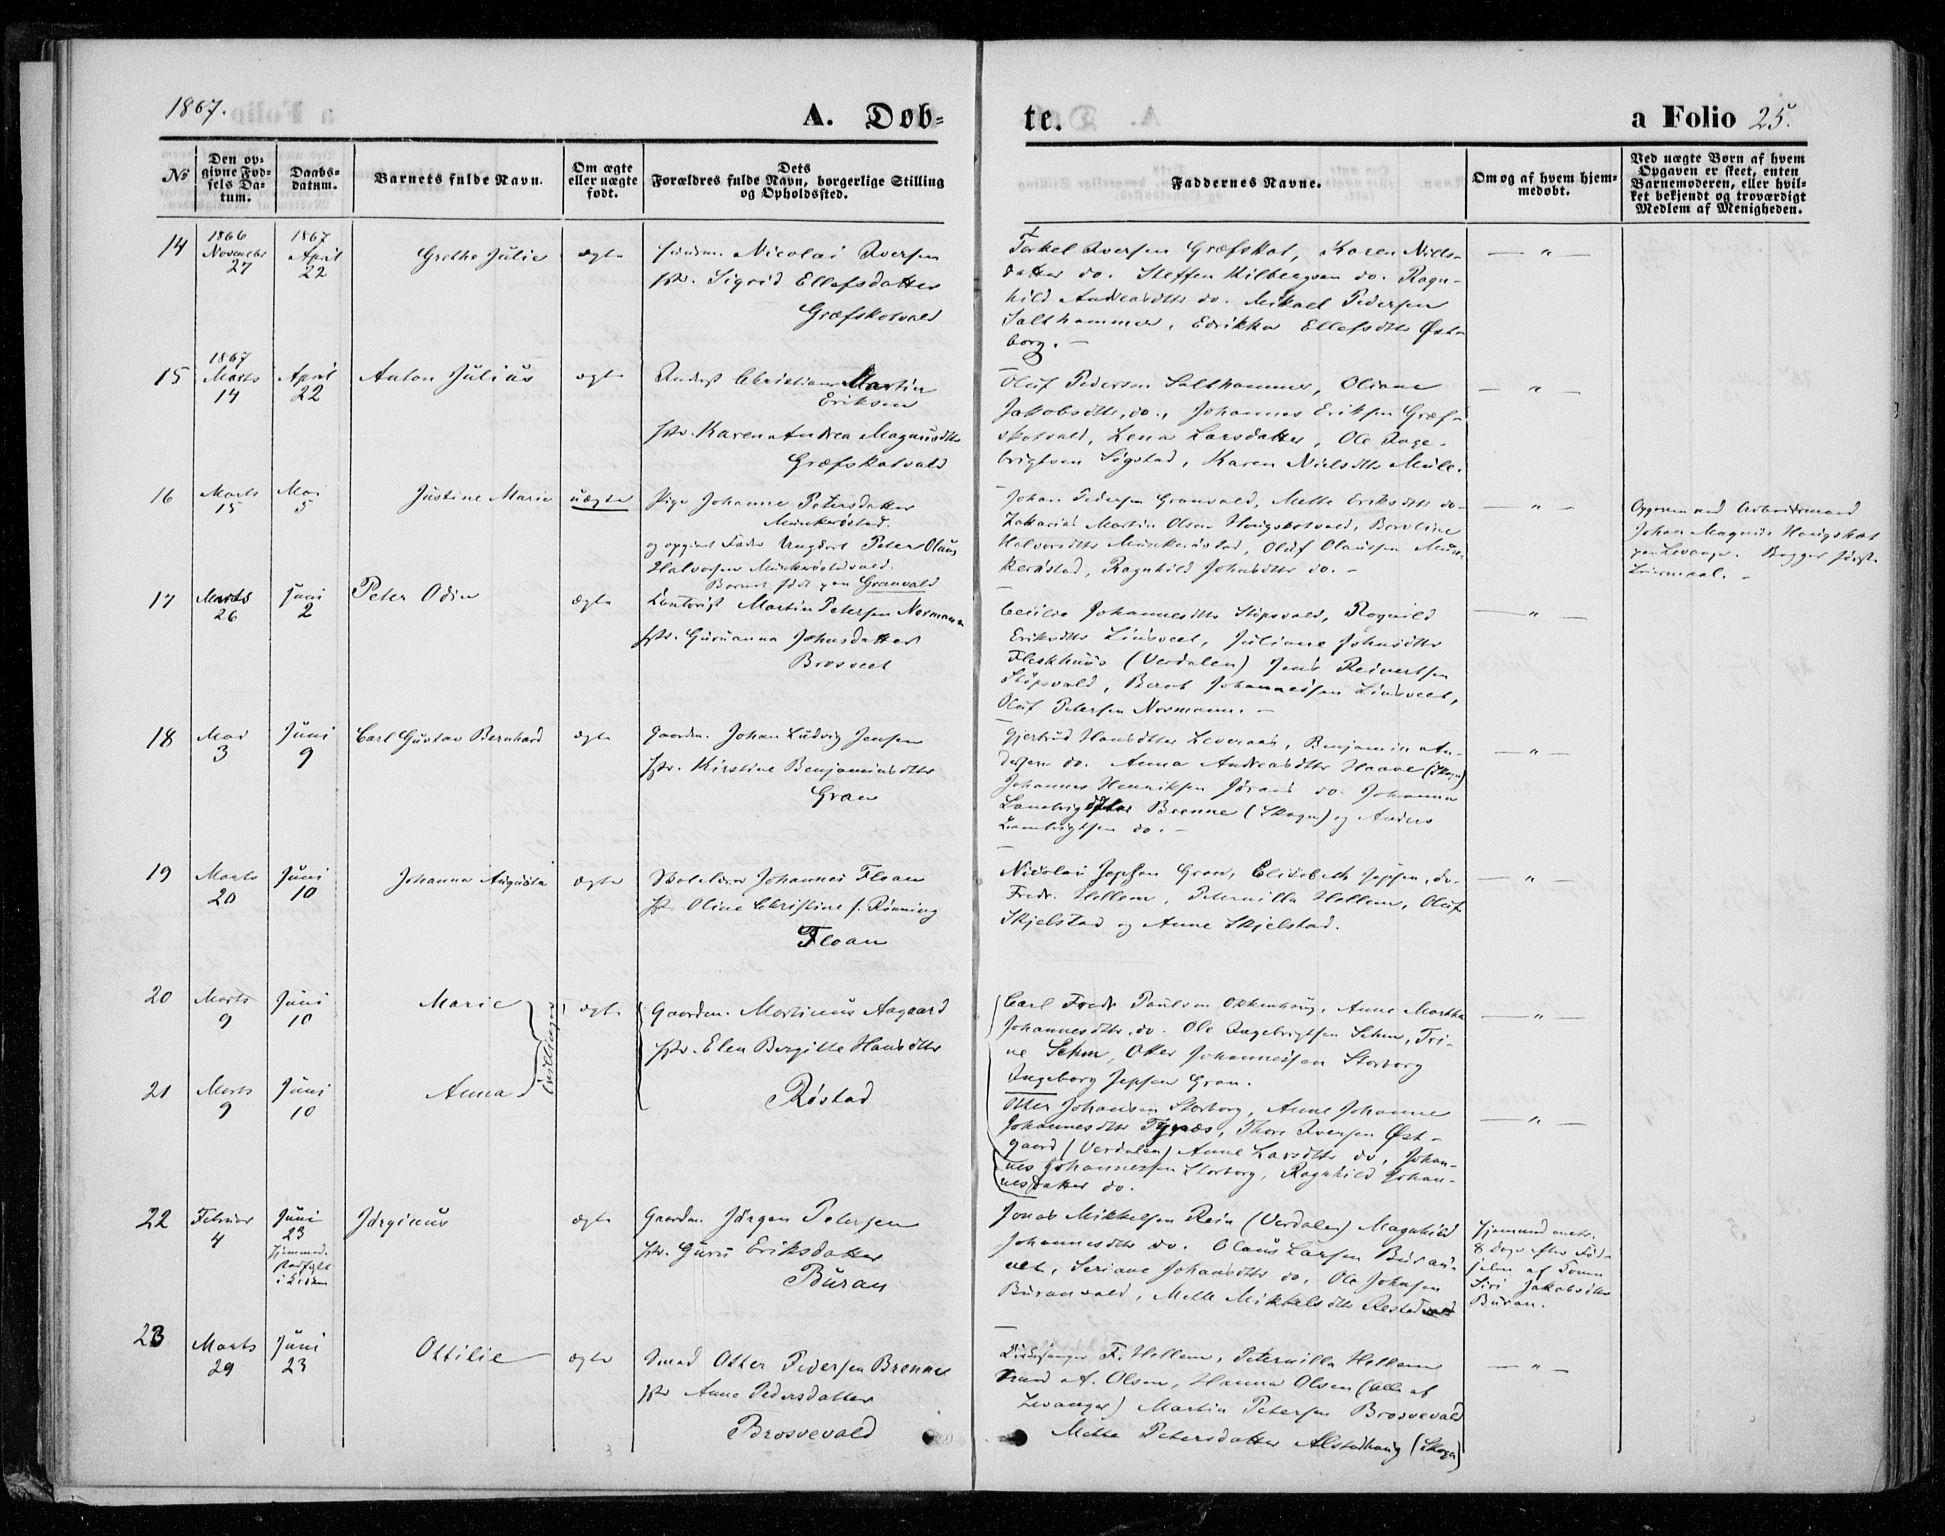 1867.
A. Døb-
te.
a Folio 25.
No
Den op-
givne Fød-
sels Da-
tum.
Daabs-
datum.
Barnets fulde Navn.
Om ægte
eller uægte
født.
Dets
Forældres fulde Navn, borgerlige Stilling
og Opholdssted.
Faddernes Navne.
Om og af hvem hjem-
medøbt.
Ved uægte Børn af hvem
Opgaven er skeet, enten
Barnemoderen, eller hvil-
ket bekjendt og troværdigt
Medlem af Menigheden.
14
1866
November
27
1867
April
22
Grethe Julie
ægte
Nicolai Iversen
Sigrid Ellefsdatter
Græfskotvald
Torkel Iversen Græfskot, Karen Niels-
datter do. Steffen do. Ragn-
hild Andreasdtr do. Mikael Pedersen
Salthammer, Ellefsdtr Øst-
borg. –
— " —
15
1867
Marts
14
April
22
Anton Julius
ægte
Christian Martin
Eriksen
Karen Andrea Magnusdtr
Græfskotvald
Oluf Pedersen Salthammer, Oliane
Jakobsdtr, do., Johannes Eriksen Græf-
skotvald, Lena Larsdatter, Ole Inge-
brigtsen Søgstad, Karen Nielsdtr Mule.
— " —
16
Marts
15
Mai
5
Justine Marie
uægte
Pige Johanne Petersdatter
Munkerøstad.
og opgivet Fader Ungdart Peter Olaus
Halvorsen Munkerøstadvald.
Barnet født paa Granvald
Johan Pedersen Granvald, Mette Eriksdtr do.
Zakarias Martin Olsen Haugskotvald, Beroline
Halvorsdtr Munkerøstad, Oluf Olaussen Mun-
kerøstad, Ragnhild Johnsdtr do. –
— " —
Opgaven ved Arbeidsmand
Johan Magnus Haugskot
paa Levanger. Begges første
Leiermaal. –
17
Marts
26
Juni
2
Peter Odin
ægte
Martin Petersen Normann
Guruanna Johnsdatter
Brosveet
Cecilie Johannesdtr Stopsvald, Ragnild
Eriksdtr Linsveet, Juliane Johnsdtr
Fleskhuus (Verdalen) Jens Reinertsen
Stopsvald, Bernt Johannessen Linsveet,
Oluf Petersen Normann. –
— " —
18
Mai
3
Juni
9
Carl Gustav Bernhard
ægte
Gaardm. Johan Ludvig Jensen
Kirstine Benjaminsdtr
Gran
Gjertrud Hansdatter Leveraas, Benjamin An-
dersen do. Anna Andreasdtr Haave (Skogn)
Johannes Henriksen do. Johanna
Brenne (Skogn) og Anders
do. –
— " —
19
Marts
20
Juni
10
Johanna Augusta
ægte
Skolelærer Johannes Floan
Oline Christine f. Rønning
Floan
Nicolai Jepsen Gran, Elisabeth Jepsen, do.
Fredr. Hellem, Peternilla Hellem, Oluf
Skjelstad og Anne Skjelstad.
— " —
20
Marts
9
Juni
10
Marie
Tvillinger
ægte
Gaardm. Martinus Aagaard
Elen Bergitte Hansdtr
Røstad
Carl Fredr Paulsen Okkenhaug, Anne Martha
Johannesdtr, do. Ole Ingebrigtsen Sehm, Tri-
ne Sehm, Otter Johannessen Storborg
Ingeborg Jepsen Gran.
— " —
21
Marts
9
Juni
10
Anna
Otter Johansen Storborg, Anne Johanne
Johannesdtr Tynæs, Thore Iversen Øst-
gaard (Verdalen) Anne Larsdtr do, Johan-
nes Johannessen Storborg, Ragnhild Johan-
nesdatter do.
— " —
22
Februar
4
Juni
23
Hjemmed.
stadfæst
i Kirken
Jørginus
ægte
Gaardm. Jørgen Petersen
Guru Eriksdatter
Buran
Jonas Mikkelsen Rein (Verdalen) Magnhild
Johannesdtr do. Olaus Larsen Buran-
vet, Seriane Johansdtr do, Ole Johnsen
Buranvald, Mette Mikkelsdtr
Hjemmed
8 Dage efter Fød-
selen af
Siri Jakobsdtr
Buran.
23
Marts
29
Juni
23
Ottilie
ægte
Smed Otter Pedersen Brenne
Anne Pedersdatter
Brosvevald
Kirkesanger F. Hellem, Peternilla Hellem
A. Olsen, Hanna Olsen (alle af
Levanger) Martin Petersen Brosvevald
Mette Petersdatter Alstadhaug (Skogn)
— " —